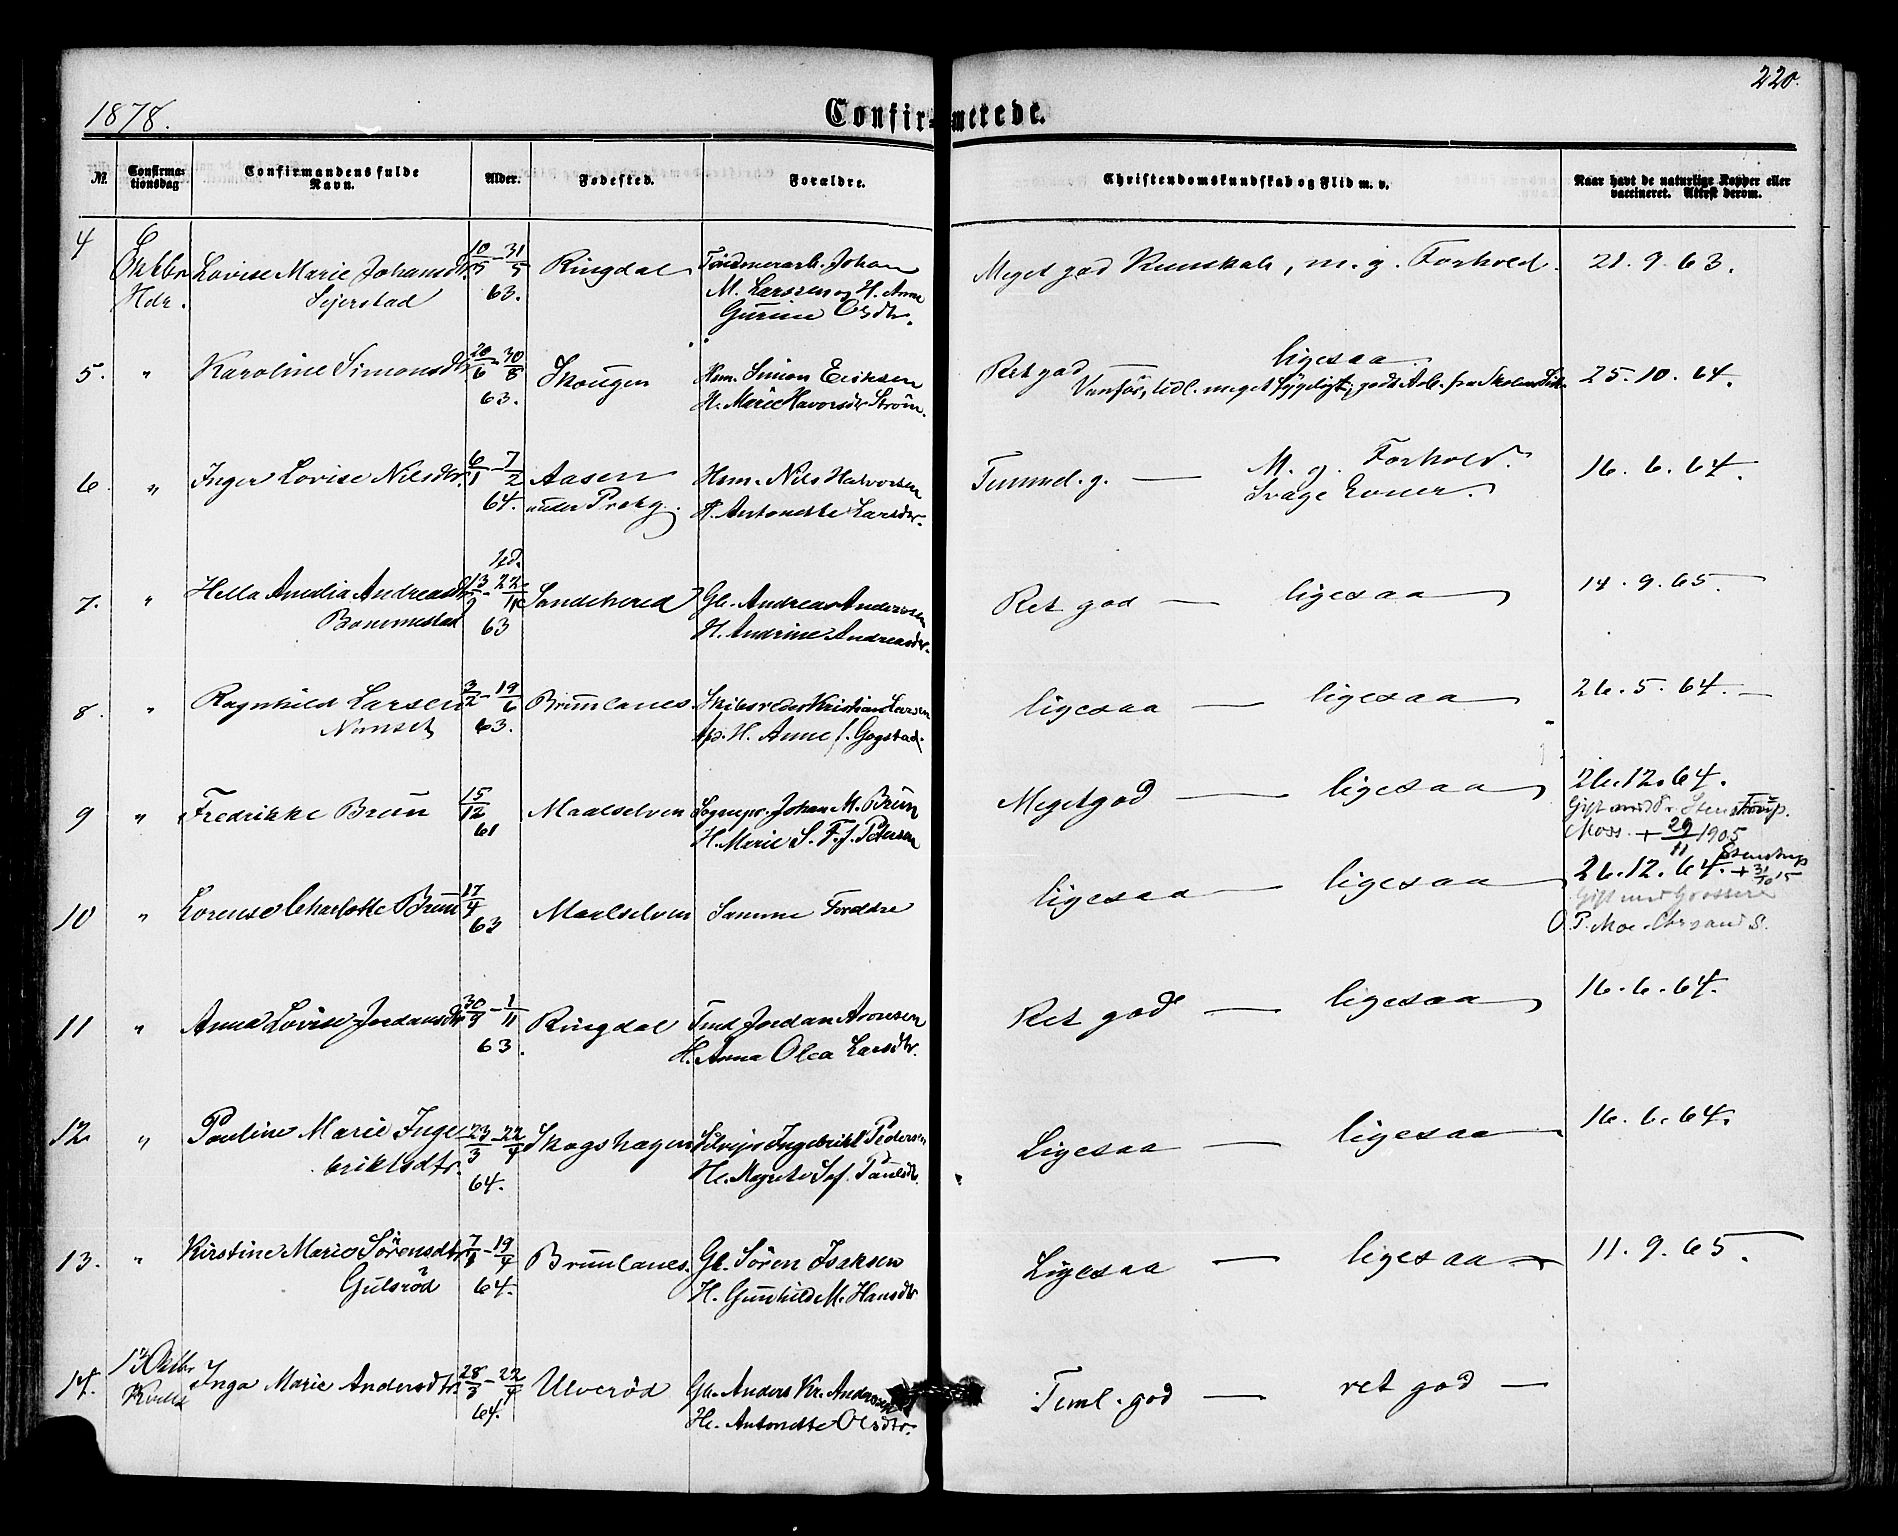 220.
1878.
Confirmerede.
№
Confirma-
tionsdag
Confirmandens fulde
Navn.
Alder.
Fødested.
Forældre.
Christendomskundskab og Flid m. v.
Naar havt de naturlige Kopper eller
vaccineret. Attest derom.
4 6 Oktbr Lovise Marie Johansdtr. 10/5 - 31/5 Ringdal Johan Meget god Kunskab, m. g. Forhold. 21. 9. 63.
Hdr. Sejerstad 63. M. Larssen og H. Anne
Gurine Olsdtr.
5. " Karoline Simonsdtr 20/6 30/8 Skougen Hsm. Simon Eriksen Ret god — ligesaa 25. 10. 64.
63. H. Marie Strøm. Vanfør, tidl. meget sygeligt, godt fra Skolen
6. " Inger Lovise Nilsdtr. 6/1 - 7/2 Aasen Hsm. Nils Halvorsen Temmel. g. — M. g. Forhold. 16. 6. 64.
64. under Prstg. H. Antonette Larsdtr. Svage Evner.
7. " Hella Amalia Andreasdtr 13/9 - 22/11 Sandehered Gb. Andreas Andersen Ret god — ligesaa 14. 9. 65.
Bommestad 63 H. Andrine Andreasdtr.
8. " Ragnhild Larsen 3/2 - 19/6 Brunlanes Skibsreder Kristian Larsen ligesaa — ligesaa 26. 5. 64. —
Nanset 63. H. Anne f. Gogstad.
9 " Fredrikke Brun 15/12 Maalselven Sognepr. Johan M. Brun Meget god — ligesaa 26. 12. 64.
61 H. Marie S. F. f. Petersen Gift med Pr. Stenstrup.
Moss. + 29/11 1905
Stenstrup
10 " Lorense Charlotte Brun 17/4 Maalselven Samme Foreldre ligesaa — ligesaa 26. 12. 64. + 31/10 15
63 Gift med Grosserer
O. P. Moe Chrsand S.
11 " Anna Lovise Jordansdtr 30/8 - 1/11 Ringdal Tmd Jordan Aronsen Ret god — ligesaa 16. 6. 64.
63. H. Anna Olea Larsdtr.
12 " Pauline Marie Inge 23/3 - 22/4 Skogshagen Ingebrikt Pedersen Ligesaa — ligesaa 16. 6. 64.
briktsdtr. 64. He. Magrete Sof. Paulsdtr.
13. " Kirstine Marie Sørensdtr 7/1 - 19/4 Brunlanes. Gb. Søren Isaksen Ligesaa — ligesaa 11. 9. 65.
Gulsrød 64. H. Gunhild M. Hansdtr
14. 13 Octbr Inga Marie Andersdtr. 28/3 - 22/4 Ulverød Gb. Anders Kr. Andersen Teml. god — ret god —
Kvelde 64. He. Antonette Olsdtr.